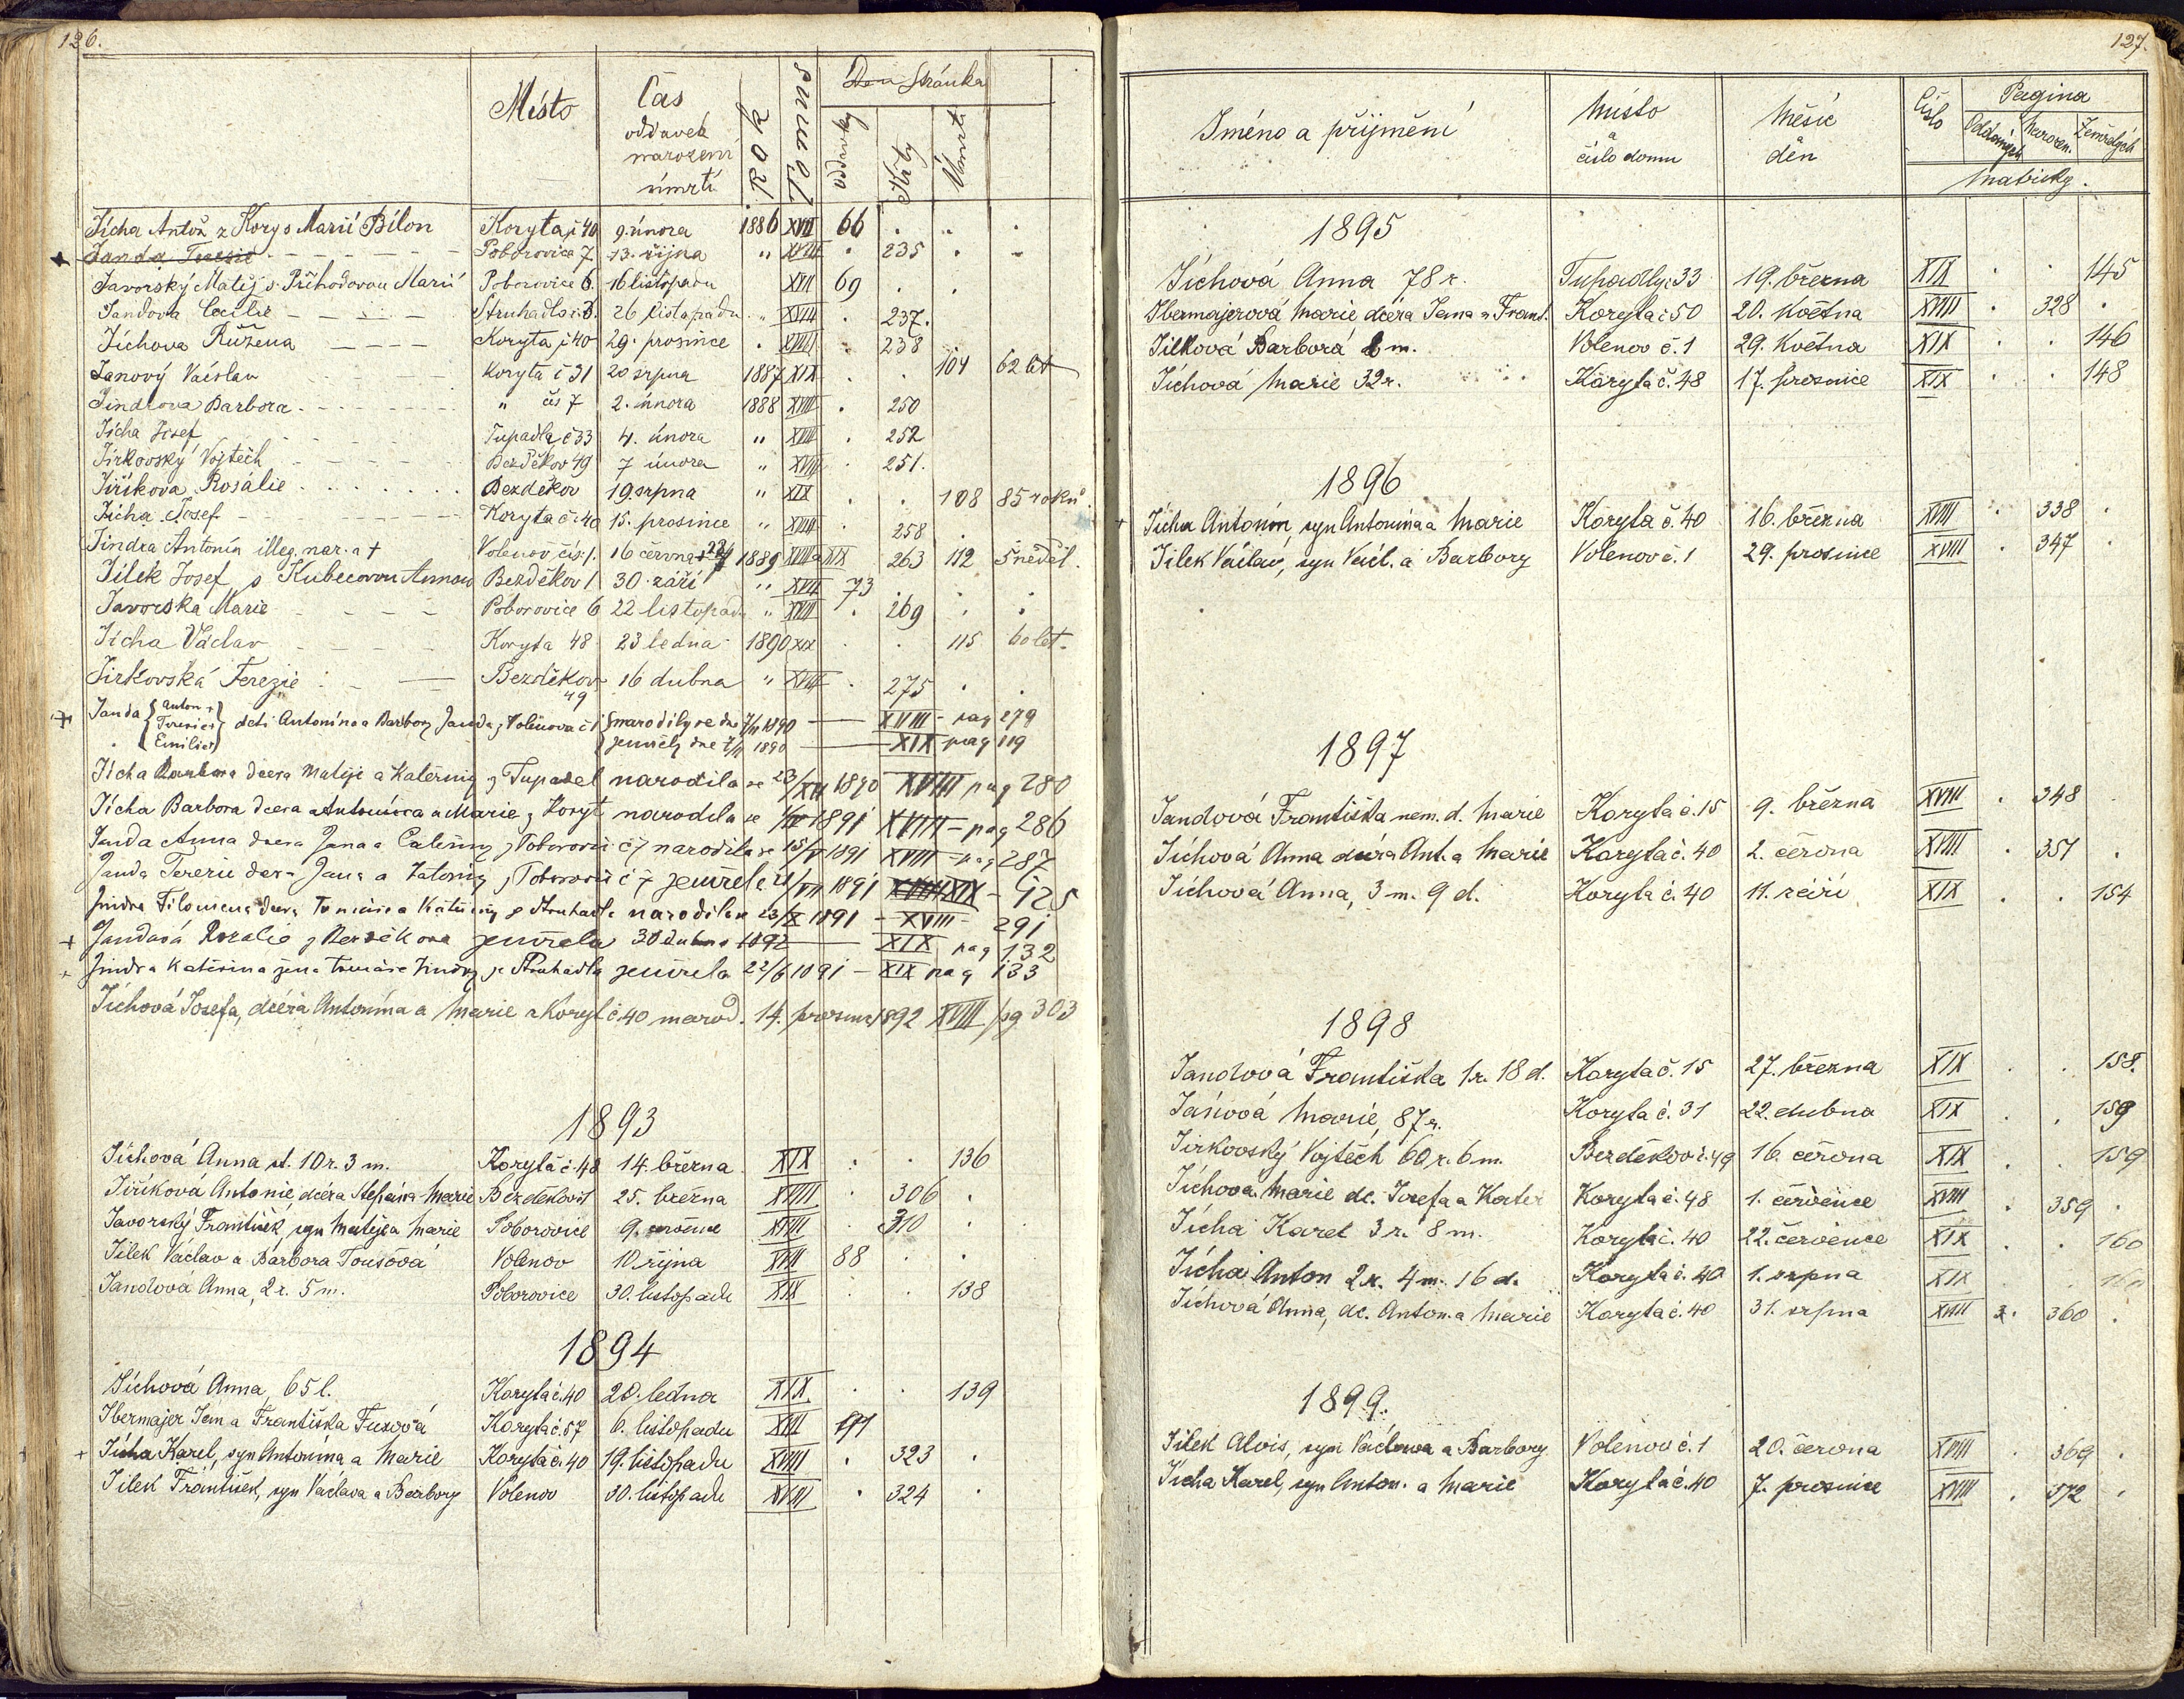 126.
Místo
Čas
oddavek
narození
úmrtí
Rok
Tomus
Den stránka
oddavky
křty
Úmrtí
Jícha Antoň z Kory s Marií Bílon Koryta č 40 9. února 1886 XVII 66
Janda Terezie Poborovice 7 13. října " XVIII 235
Javorský Matěj s Příhodovou Marií Poborovice 6. 16 listopadu XVII 69
Jandova Cecilie Struhadlo č. 26 listopadu " XVIII 237.
Jíchova Růžena Koryta č 40 29. prosince XVIII 238
Janový Václav Koryta č 31 20 srpna 1887 XIX 104 62 let
Jindrova Barbora " čís 7 2. února 1888 XVIII 250
Jícha Josef Tupadla č 33 4. února " XVIII 252
Jirkovský Vojtěch Bezděkov 49 7 února " XVIII 251.
Jiříkova Rosálie Bezděkov 19. srpna " XIX 108 85 roků
Jícha Josef Koryta č. 40 15. prosince " XVIII 258
Jindra Antonín illeg. nar. a † Volenov čís. 1. 16 června 1889 XVIII a XIX 263 112 5 neděl.
Jílek Josef s Kubecovou Annou Bezděkov 1 30. září " XVII 73
Javorska Marie Poborovice 6 22 listopadu " XVIII 269
Jícha Václav Koryta 48 23 ledna 1890 XIX 115 60 let.
Jirkovská Terezie Bezděkov 49 16 dubna " XVIII 275
Janda { Anton + Terezie Emilie } děti Antonína a Barbory Janda z Volenova č 1 narodily se dne 1890 XVIII - pag 279
zemřely dne 1890 XIX pag 119
Jícha Barbora dcera Matěje a Kateřiny z Tupadel narodila se 23/XII 1890 XVIII pag 280
Jícha Barbora dcera Antonína a Marie z Koryt narodila se 1891 XVIII - pag 286
Janda Anna dcera Jana a Kateřiny z Poborovic č 7 narodila se 15/V 1891 XVIII - pag 287
Janda Terezie Jana a Kateřiny z Poborovic č 7 zemřela 1891 XVIII XIX - 125
Jindra Filomena dcera Tomáše a Kateřiny ze Struhadla narodila se 23/X 1891 - XVIII 291
Jandová Rozalie z Bezděkova zemřela 30 dubna 1892 XIX pag 132
Jindra Kateřina žena Tomáše Jindry ze Struhadla zemřela 22/6 1891 - XIX pag 133
Jíchová Josefa, dcéra Antonína a Marie z Koryt č. 40 narod. 14. prosince 1892 XVIII pg 303
1893
Jíchová Anna st. 10 r. 3 m. Koryta č. 48 14. března XIX 136
Jiříková Antonie dcéra Štěpána Marie Bezděkov 25. března XVIII 306
Javorský František, syn Matěje a Marie Poborovice 9. července XVIII 310
Jílek Václav a Barbora Toušová Volenov 10. října XVII 88
Jandová Anna, 2 r. 5 m. Poborovice 30. listopadu XIX 138
1894
Jíchová Anna, 65 l. Koryta č. 40 20. ledna XIX 139
Ibermajer Jan a Františka Fuxová Koryta č. 57 6. listopadu XVII 91
+ Jícha Karel, syn Antonína a Marie Koryta č. 40 19. listopadu XVIII 323
Jílek František, syn Václava a Barbory Volenov 30. listopadu XVIII 324
127.
Jméno a příjmění
Místo
a
číslo domu
Měsíc
den
Číslo
Pagina
Oddaných
Narozen.
Zemřelých
Matriky.
1895
Jíchová Anna 78 r. Tupadly č. 33 19. března XIX 145
Ibermajerová Marie dcéra Jana a Frant. Koryta č 50 20. května XVIII 328
Jílková Barbora m. Volenov č. 1 29. května XIX 146
Jíchová Marie 32 r. Koryta č. 48 17. prosince XIX 148
1896
+ Jícha Antonín, syn Antonína a Marie Koryta č. 40 16. března XVIII 338
Jílek Václav, syn Václ. a Barbory Volenov č. 1 29. prosince XVIII 347
1897
Jandová Františka nem. d. Marie Koryta č. 15 9. března XVIII 348
Jíchová Anna dcéra Ant. a Marie Koryta č. 40 2. června XVIII 351
Jíchová Anna, 3 m. 9 d. Koryta č. 40 11. září XIX 154
1898
Jandová Františka 1 r. 18 d. Koryta č. 15 27. března XIX 158.
Jánová Marie, 87 r. Koryta č. 31 22. dubna XIX 159
Jirkovský Vojtěch 60 r. 6 m. Bezděkov č. 49 16. června XIX 159
Jíchova Marie dc. Josefa a Kateř Koryta č. 48 1. července XVIII 359
Jícha Karel 3 r. 8 m. Koryta č. 40 22. července XIX 160
Jícha Anton 2 r. 4 m. 16 d. Koryta č. 40 1. srpna XIX 160
Jíchová Anna, dc. Anton. a Marie Koryta č. 40 31. srpna XVIII 360
1899.
Jílek Alois, syn Václava a Barbory Volenov č. 1 20. června XVIII 369
Jícha Karel, syn Anton. a Marie Koryta č. 40 7. prosince XVIII 372